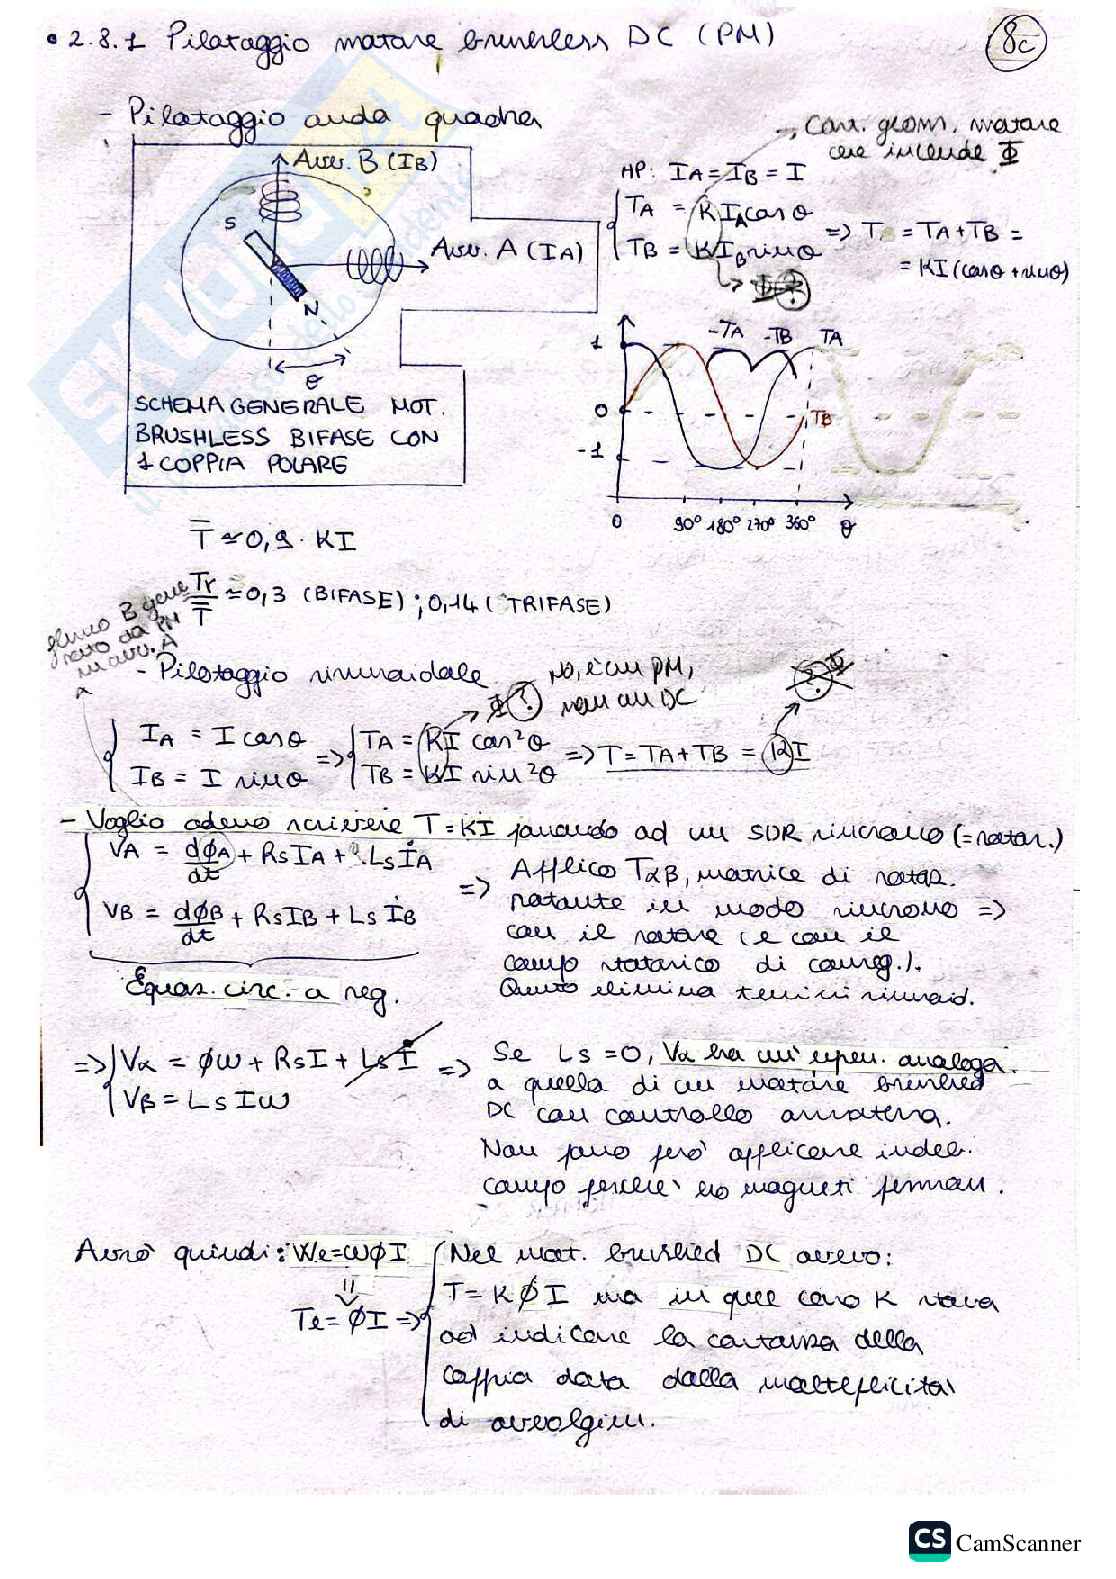 • 2.8.1 Pilotaggio motore brushless DC (PM)
8c
- Pilotaggio onda quadra
→ Cost. geom. motore
che include Φ
Avv. B (IB)
S
Avv. A (IA)
N
θ
SCHEMA GENERALE MOT.
BRUSHLESS BIFASE CON
1 COPPIA POLARE
HP: IA = IB = I
TA = K IA cosθ
TB = K IB sinθ
=> T = TA + TB =
= KI (cosθ + sinθ)
1
0
-1
-TA -TB TA
TB
0 90° 180° 270° 360° θ
T̄ ≈ 0,9 · KI
Tr/T̄ ≈ 0,3 (BIFASE) ; 0,14 (TRIFASE)
flusso B gene
rato da PM
in avv. A
- Pilotaggio sinusoidale
Φ ?
No, è un PM,
non un DC
? Φ
IA = I cosθ
IB = I sinθ
=> TA = KI cos²θ
TB = KI sin²θ
=> T = TA + TB = KI
- Voglio adesso scrivere T = KI passando ad un SDR sincrono (= rotor.)
VA = dφA/dt + Rs IA + Ls İA
VB = dφB/dt + Rs IB + Ls İB
Equaz. circ. a reg.
=> Applico Tαβ, matrice di rotaz.
rotante in modo sincrono =>
con il rotore (e con il
campo statorico di conseg.).
Questo elimina termini sinusoid.
=> Vα = φω + Rs I + Ls İ
Vβ = Ls I ω
=> Se Ls = 0, Vα ha un' espr. analoga
a quella di un motore brushed
DC con controllo armatura.
Non posso però applicare indeb.
campo perché ho magneti perman.
Avrò quindi: We = ωφI
Te = φI =>
Nel mot. brushed DC avevo:
T = KφI ma in quel caso K stava
ad indicare la costanza della
coppia data dalla molteplicità
di avvolgim.
CS CamScanner